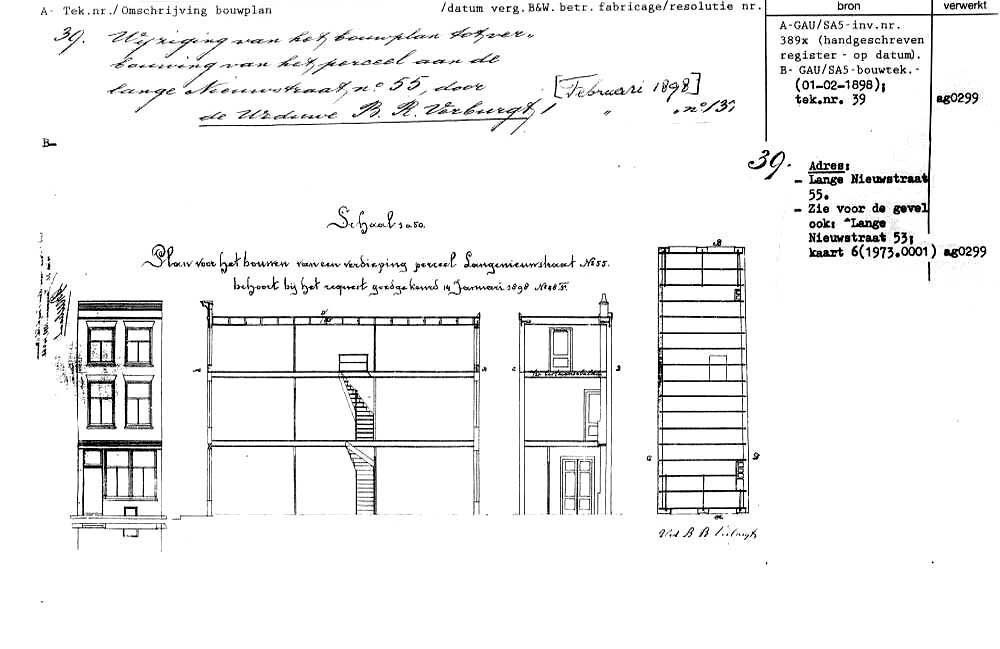 A- Tek.nr./Omschrijving bouwplan /datum verg.B&W. betr. fabricage/resolutie nr.
bron
verwerkt
39. Wijziging van het bouwplan tot ver-
bouwing van het perceel aan de
lange Nieuwstraat, no 55, door
de Weduwe B. R. Verburgt,
[Februari 1898]
" no 13
A-GAU/SA5-inv.nr.
389x (handgeschreven
register - op datum).
B- GAU/SA5-bouwtek.-
(01-02-1898);
tek.nr. 39
ag0299
B-
39.
Adres:
- Lange Nieuwstraat
55.
- Zie voor de gevel
ook: ^Lange
Nieuwstraat 53;
kaart 6(1973.0001)
ag0299
Schaal 1 a 50.
Plan voor het bouwen van een verdieping perceel Langenieuwstraat No 55.
behoort bij het request goedgekeurd 14 Januari 1898